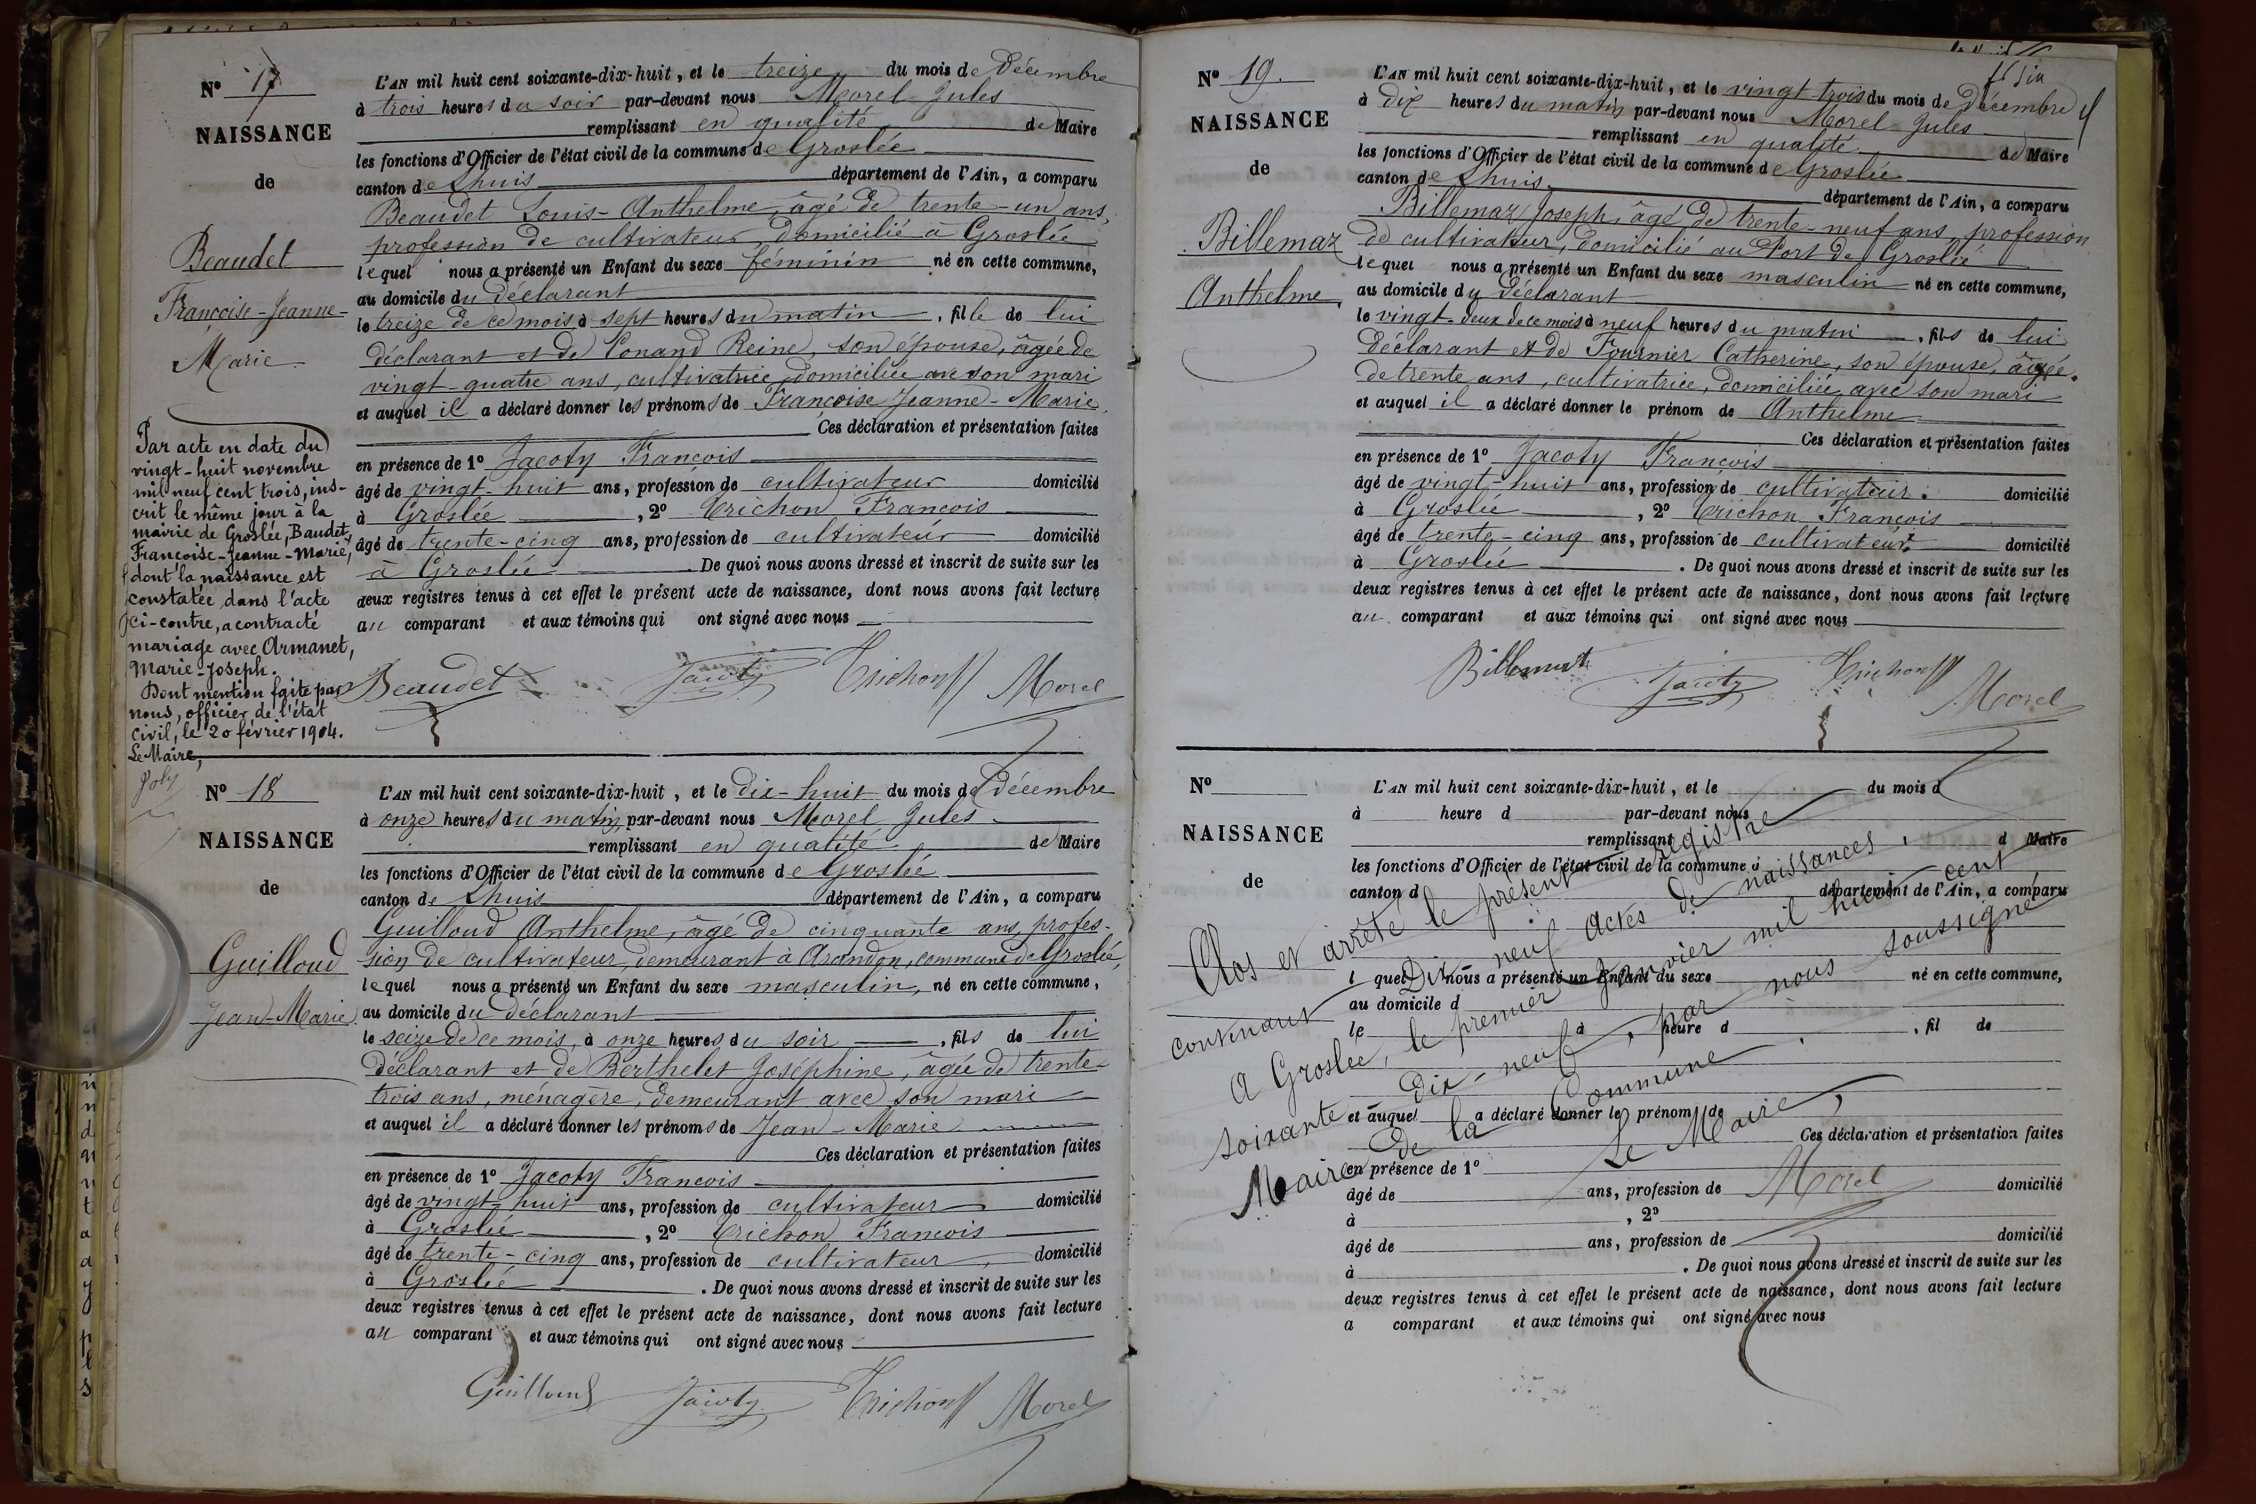 N° 17
NAISSANCE
de
Beaudet
Françoise-Jeanne-
Marie
Par acte en date du
vingt-huit novembre
mil neuf cent trois, ins-
crit le même jour à la
mairie de Groslée, Baudet,
Françoise-Jeanne-Marie,
dont la naissance est
constatée dans l'acte
ci-contre, a contracté
mariage avec Armanet,
Marie-Joseph.
Dont mention faite par
nous, officier de l'état
civil, le 20 février 1904.
Le Maire,
Joly
L'AN mil huit cent soixante-dix-huit, et le treize du mois de Décembre
à trois heures du soir par-devant nous Morel Jules
remplissant en qualité de Maire
les fonctions d'Officier de l'état civil de la commune de Groslée
canton de Lhuis département de l'Ain, a comparu
Beaudet Louis-Anthelme, âgé de trente-un ans,
profession de cultivateur, domicilié à Groslée
lequel nous a présenté un Enfant du sexe féminin né en cette commune,
au domicile du déclarant
le treize de ce mois à sept heures du matin, fille de lui
déclarant et de Conand Reine, son épouse, âgée de
vingt-quatre ans, cultivatrice, domiciliée avec son mari
et auquel il a déclaré donner les prénoms de Françoise Jeanne-Marie.
Ces déclaration et présentation faites
en présence de 1° Jacoty François
âgé de vingt-huit ans, profession de cultivateur domicilié
à Groslée, 2° Trichon François
âgé de trente-cinq ans, profession de cultivateur domicilié
à Groslée. De quoi nous avons dressé et inscrit de suite sur les
deux registres tenus à cet effet le présent acte de naissance, dont nous avons fait lecture
au comparant et aux témoins qui ont signé avec nous
Beaudet Jacoty Trichon Morel
N° 18
NAISSANCE
de
Guilloud
Jean-Marie.
L'AN mil huit cent soixante-dix-huit, et le dix-huit du mois de décembre
à onze heures du matin, par-devant nous Morel Jules
remplissant en qualité de Maire
les fonctions d'Officier de l'état civil de la commune de Groslée
canton de Lhuis département de l'Ain, a comparu
Guilloud Anthelme, âgé de cinquante ans, profes-
sion de cultivateur, demeurant à Arandon, commune de Groslée,
lequel nous a présenté un Enfant du sexe masculin, né en cette commune,
au domicile du déclarant
le seize de ce mois, à onze heures du soir, fils de lui
déclarant et de Berthelet Joséphine, âgée de trente-
trois ans, ménagère, demeurant avec son mari
et auquel il a déclaré donner les prénoms de Jean-Marie
Ces déclaration et présentation faites
en présence de 1° Jacoty François
âgé de vingt-huit ans, profession de cultivateur domicilié
à Groslée, 2° Trichon François
âgé de trente-cinq ans, profession de cultivateur, domicilié
à Groslée. De quoi nous avons dressé et inscrit de suite sur les
deux registres tenus à cet effet le présent acte de naissance, dont nous avons fait lecture
au comparant et aux témoins qui ont signé avec nous
Guilloud Jacoty Trichon Morel
N° 19.
NAISSANCE
de
Billemaz
Anthelme,
L'AN mil huit cent soixante-dix-huit, et le vingt trois du mois de Décembre
à dix heures du matin par-devant nous Morel Jules
remplissant en qualité de Maire
les fonctions d'Officier de l'état civil de la commune de Groslée
canton de Lhuis département de l'Ain, a comparu
Billemaz Joseph, âgé de trente-neuf ans, profession
de cultivateur, domicilié au Port de Groslée
lequel nous a présenté un Enfant du sexe masculin né en cette commune,
au domicile du déclarant
le vingt-deux de ce mois à neuf heures du matin, fils de lui
déclarant et de Fournier Catherine, son épouse, âgée
de trente ans, cultivatrice, domiciliée avec son mari
et auquel il a déclaré donner le prénom de Anthelme
Ces déclaration et présentation faites
en présence de 1° Jacoty François
âgé de vingt-huit ans, profession de cultivateur. domicilié
à Groslée, 2° Trichon François
âgé de trente-cinq ans, profession de cultivateur domicilié
à Groslée. De quoi nous avons dressé et inscrit de suite sur les
deux registres tenus à cet effet le présent acte de naissance, dont nous avons fait lecture
au comparant et aux témoins qui ont signé avec nous
Billemaz Jacoty Trichon Morel
N°
NAISSANCE
de
L'AN mil huit cent soixante-dix-huit, et le du mois d
à heure d par-devant nous
remplissant d Maire
les fonctions d'Officier de l'état civil de la commune d
canton d département de l'Ain, a comparu
l quel nous a présenté un Enfant du sexe né en cette commune,
au domicile d
le à heure d , fil de
et auquel a déclaré donner le prénom de
Ces déclaration et présentation faites
en présence de 1°
âgé de ans, profession de domicilié
à , 2°
âgé de ans, profession de domicilié
à . De quoi nous avons dressé et inscrit de suite sur les
deux registres tenus à cet effet le présent acte de naissance, dont nous avons fait lecture
a comparant et aux témoins qui ont signé avec nous
Clos et arrêté le présent registre
contenant Dix neuf actes de naissances,
A Groslée, le premier Janvier mil huit cent
soixante dix-neuf, par nous soussigné
Maire de la Commune.
Le Maire,
Morel